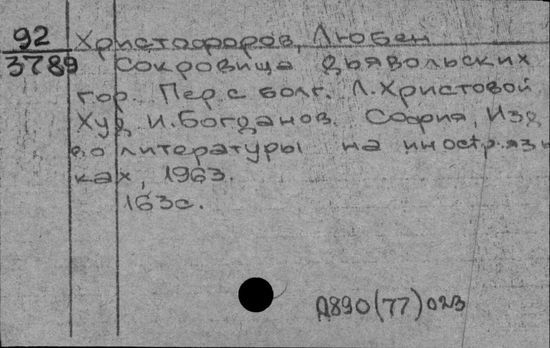 92
3789
Христофоров, Любен
Сокровища дьявольских
гор. Пер. с болг. Л. Христовой
Худ. И. Богданов. София, Изд
во литературы на иностр. язы
ках, 1963.
163с.
А890(77)023